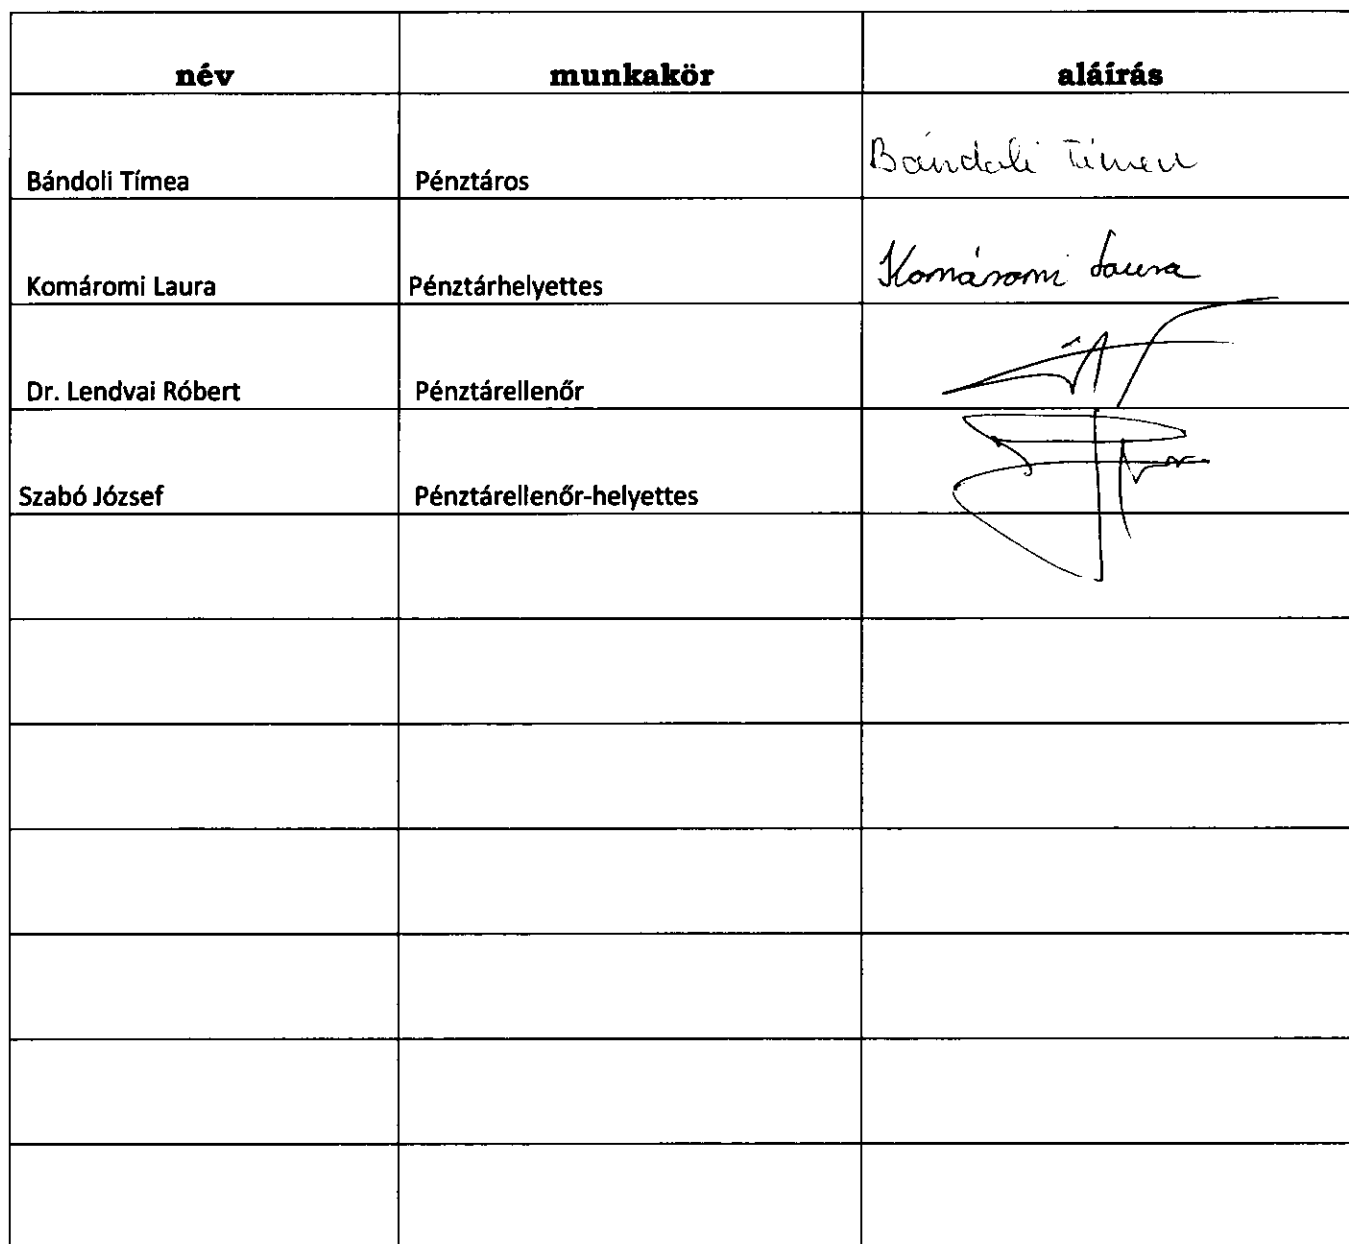 név munkakör aláírás
Bándoli Tímea Pénztáros Bándoli Tímea
Komáromi Laura Pénztárhelyettes Komáromi Laura
Dr. Lendvai Róbert Pénztárellenőr
Szabó József Pénztárellenőr-helyettes